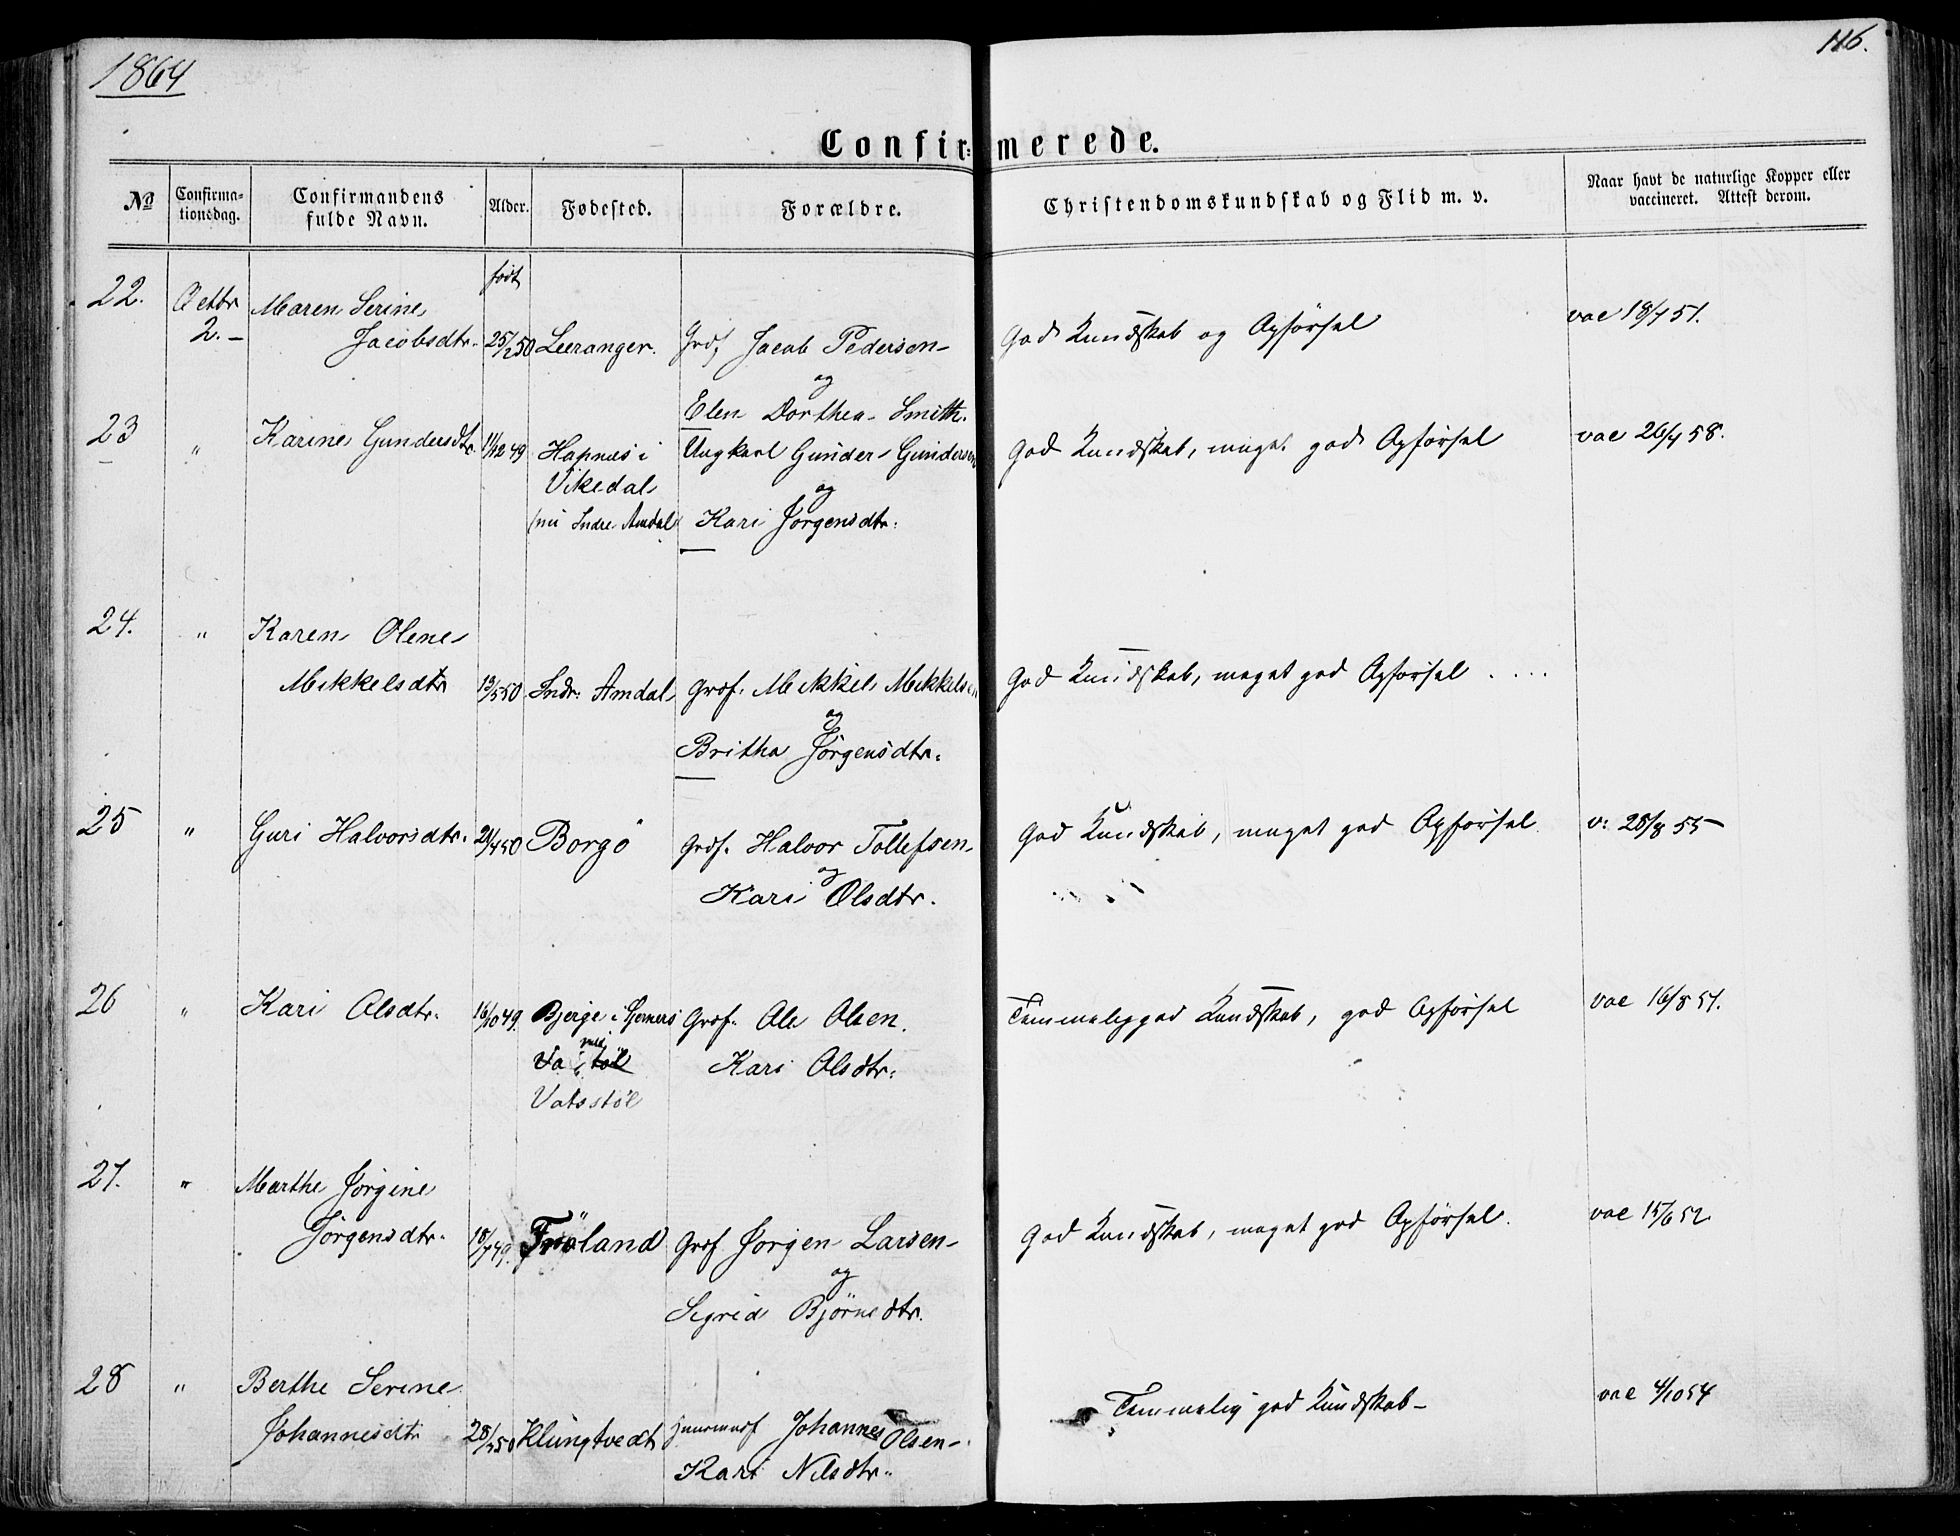 1864
116.
Confirmerede.
No
Confirmationsdag.
Confirmandens fulde Navn.
Alder.
Fødested.
Forældre.
Christendomskundskab og Flid m. v.
Naar havt de naturlige Kopper eller vaccineret. Attest derom.
født
22. Octbr 2. Maren Serine
Jacobsdtr. 25/1 50 Leeranger. Grdf Jacob Pedersen
og
Elen Dorthea Smith.
God Kundskab og Opførsel
vac 18/7 51.
23 " Karine Gundersdtr. 11/12 49 Hapnes i Ungkarl Gunder Gundersen
Vikedal og
(nu Indre Amdal) Kari Jørgensdtr.
God Kundskab, meget god Opførsel
vac 26/7 58.
24. " Karen Olene
Mikkelsdtr 13/5 50 Indr: Amdal Grdf. Mikkel Mikkelsen
og
Britha Jørgensdtr.
God Kundskab, meget god Opførsel
25 " Guri Halvorsdtr. 21/4 50 Borgø Grdf. Halvor Tollefsen
og
Kari Olsdtr.
God Kundskab, meget god Opførsel
v: 28/8 55
26 " Kari Olsdtr. 16/10 49. Bjerge i Grdf. Ole Olsen.
Kari Olsdtr.
Vatsstøl
Temmelig god Kundskab, god Opførsel
vac 16/8 51.
27. " Marthe Jørgine
Jørgensdtr. 18/7 49. Frøland Grdf Jørgen Larsen
og
Sigrid Bjørnsdtr.
God Kundskab, meget god Opførsel.
vac 15/6 52
28 " Berthe Serine
Johannesdtr 28/2 50 Klungtvedt Huusmand Johannes Olsen
Kari Nilsdtr.
Temmelig god Kundskab
vac 4/10 54